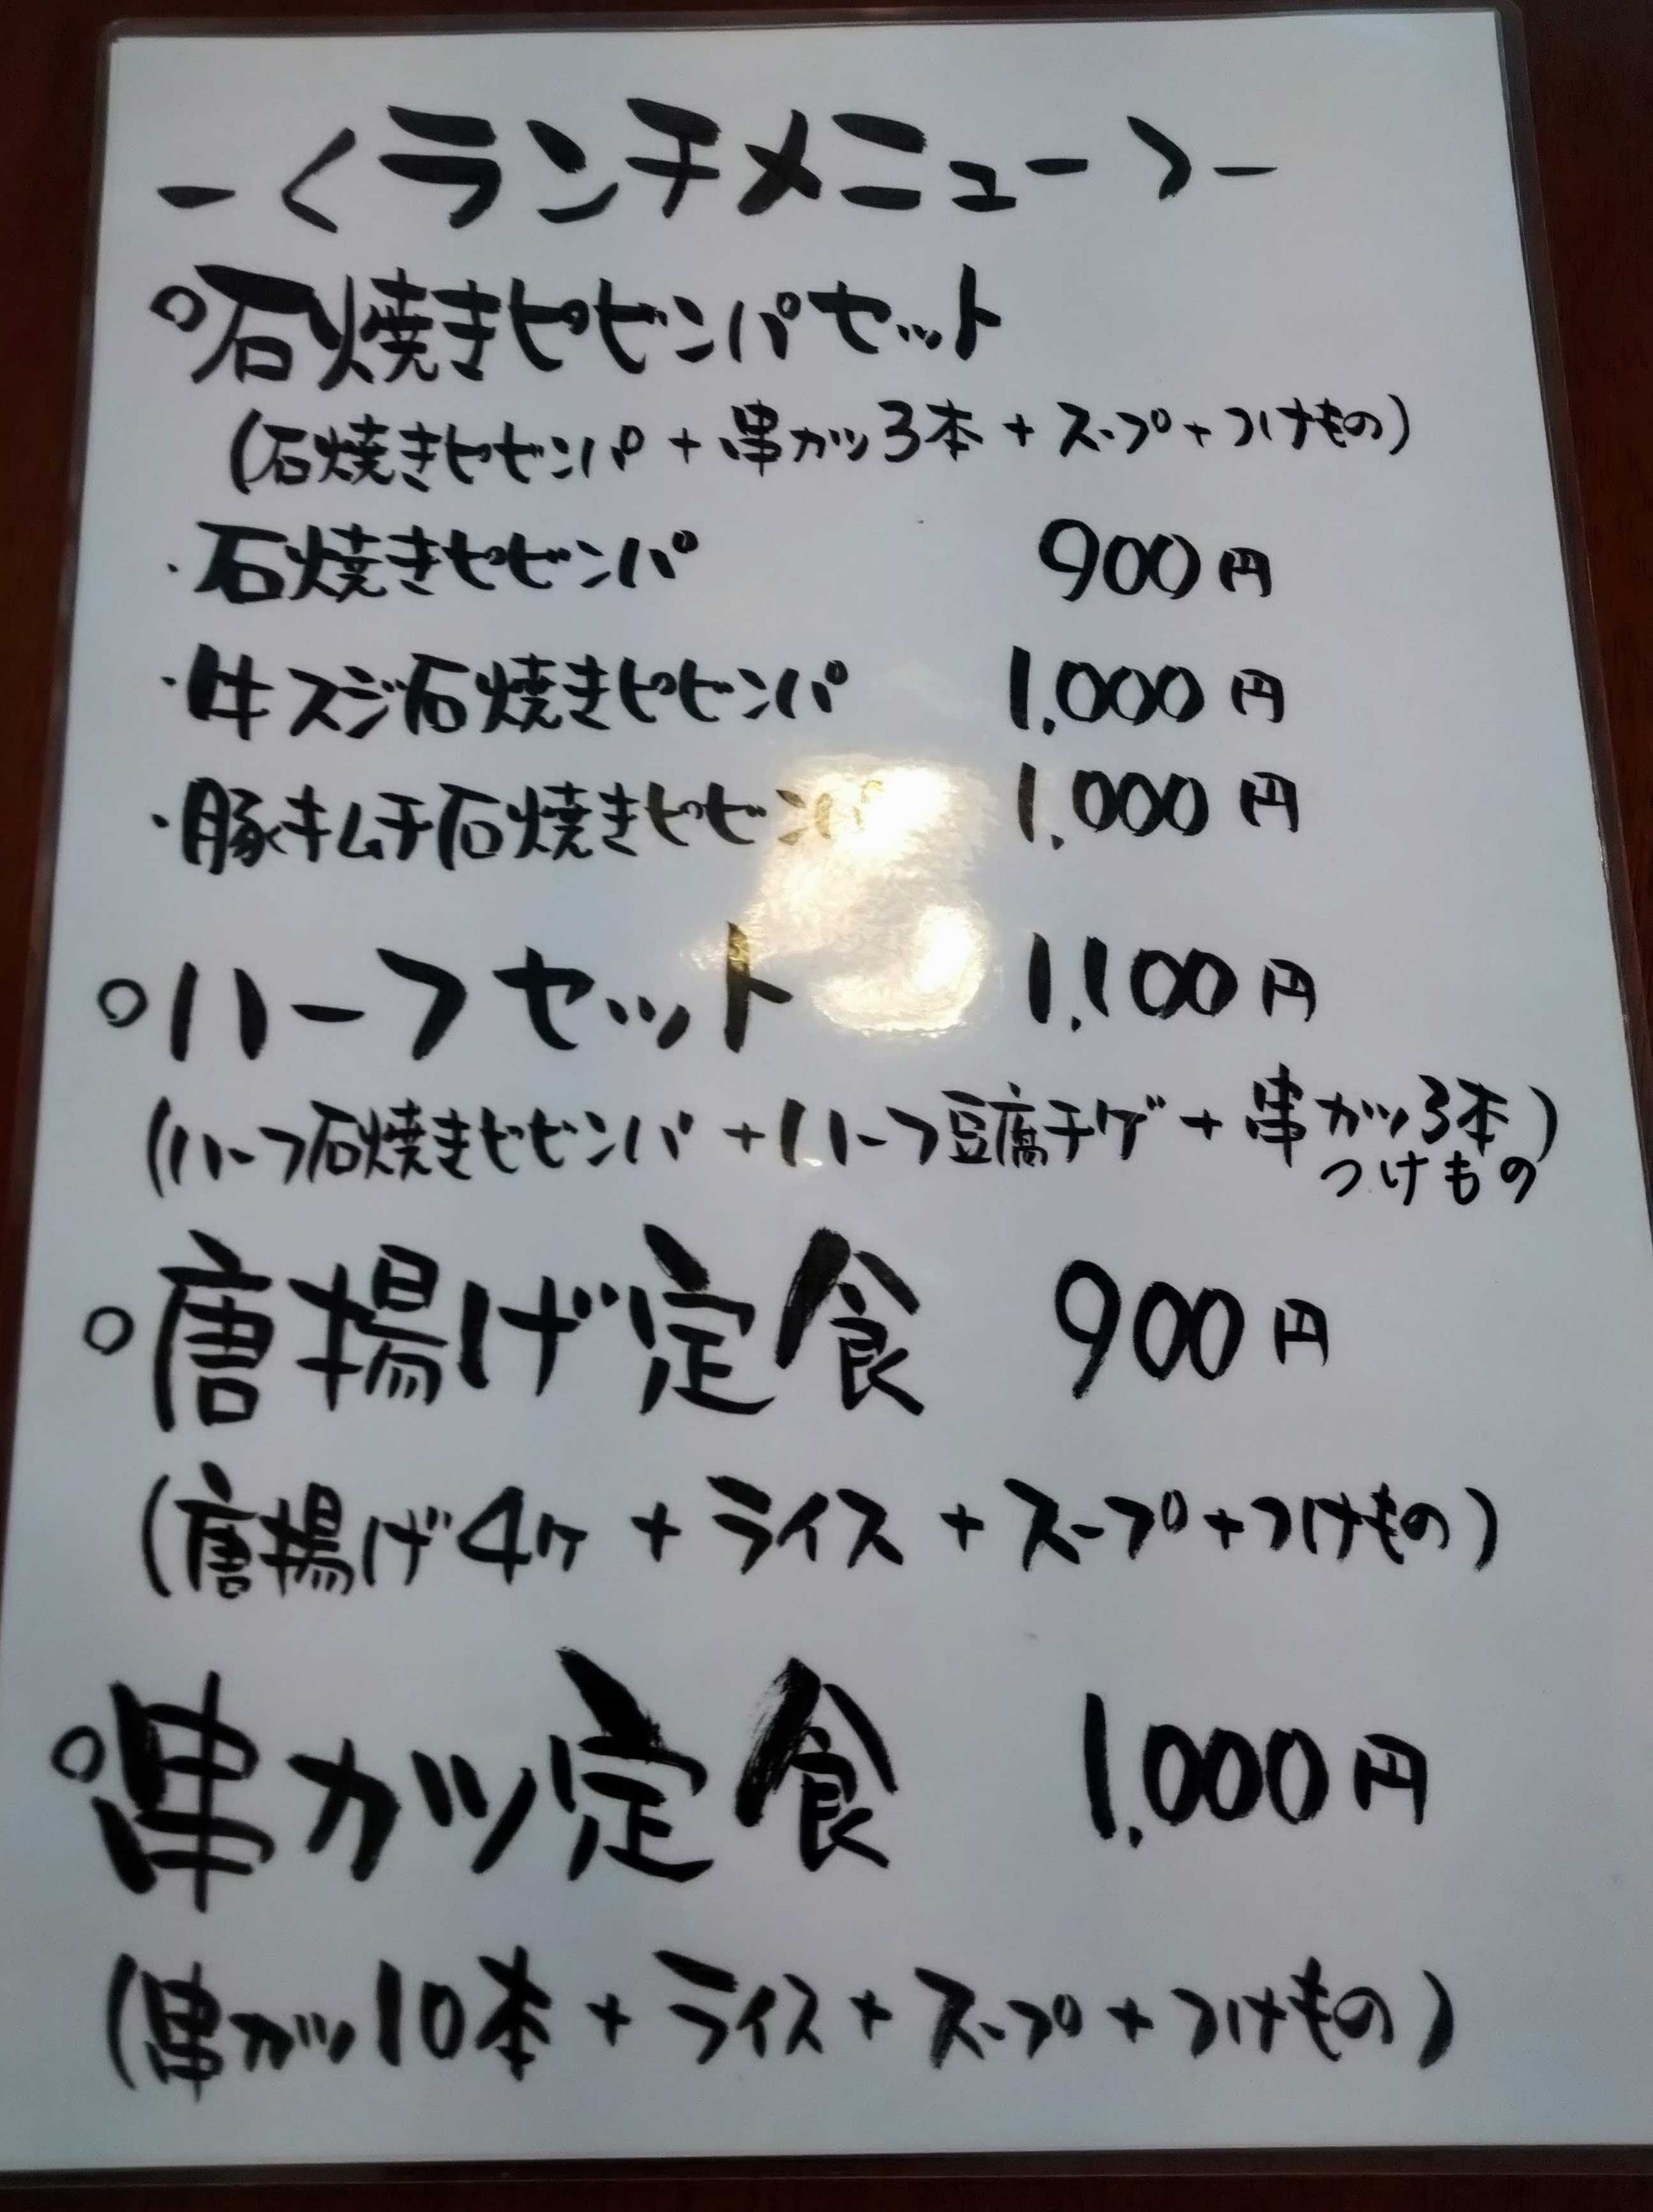 -<ランチメニュー>-
○石焼きピビンパセット
(石焼きピビンパ + 串カツ3本 + スープ + つけもの)
・石焼きピビンパ 900円
・牛スジ石焼きピビンパ 1,000円
・豚キムチ石焼きピビンパ 1,000円
○ハーフセット 1,100円
(ハーフ石焼きピビンパ + ハーフ豆腐チゲ + 串カツ3本)
つけもの
○唐揚げ定食 900円
(唐揚げ4ケ + ライス + スープ + つけもの)
○串カツ定食 1,000円
(串カツ10本 + ライス + スープ + つけもの)